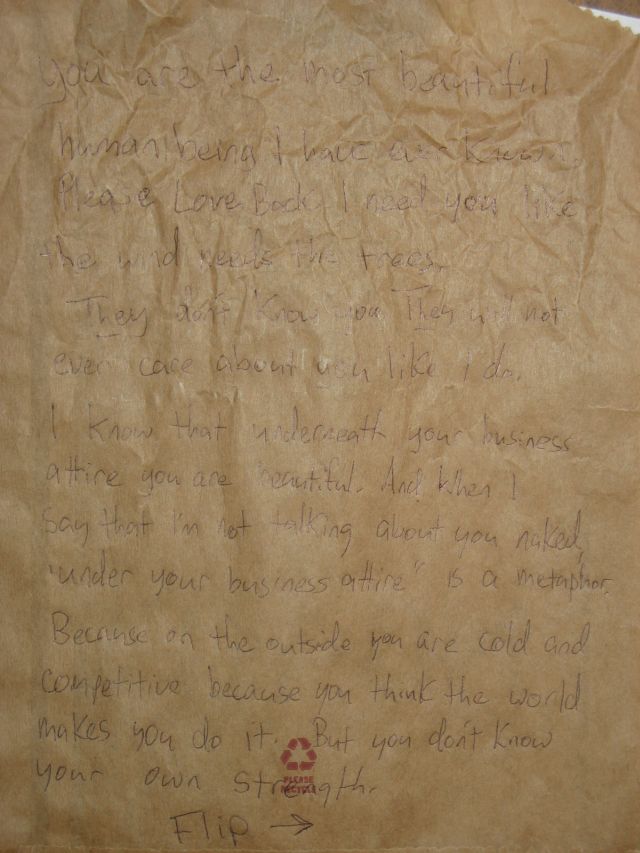 you are the most beautiful
human being I have ever known.
Please Love Back. I need you like
the wind needs the trees.
They don't know you. They will not
ever care about you like I do.
I know that underneath your business
attire you are beautiful. And when I
say that I'm not talking about you naked,
"under your business attire" is a metaphor.
Because on the outside you are cold and
competitive because you think the world
makes you do it. But you don't know
your own strength.
PLEASE
RECYCLE
Flip →